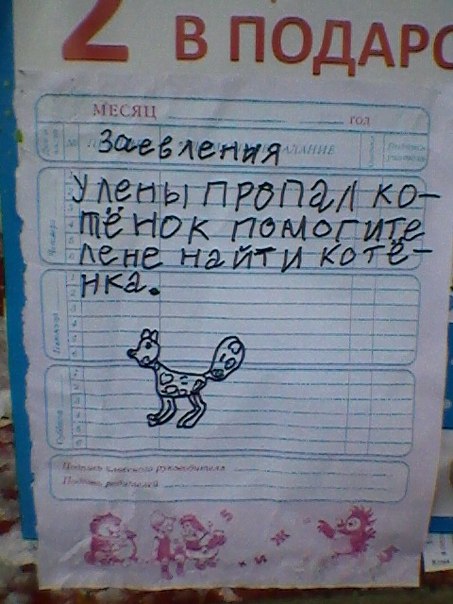 2 В ПОДАРО
МЕСЯЦ ГОД
Заевления
У лены пропал ко-
тёнок помогите
лене найти котё-
нка.
Подпись классного руководителя
Подпись родителей